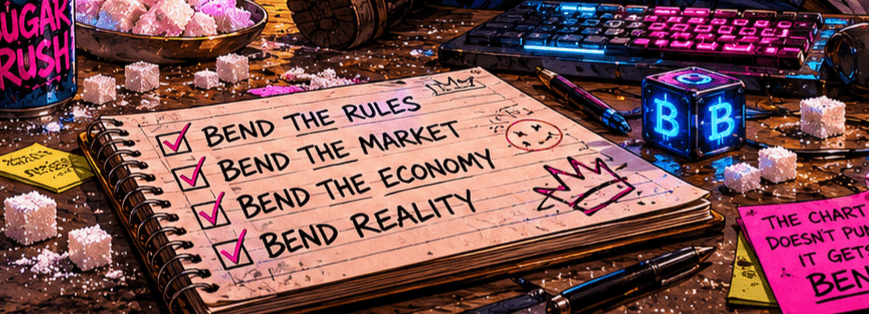 SUGAR
RUSH
BEND THE RULES
BEND THE MARKET
BEND THE ECONOMY
BEND REALITY
THE CHART
DOESN'T
IT GETS